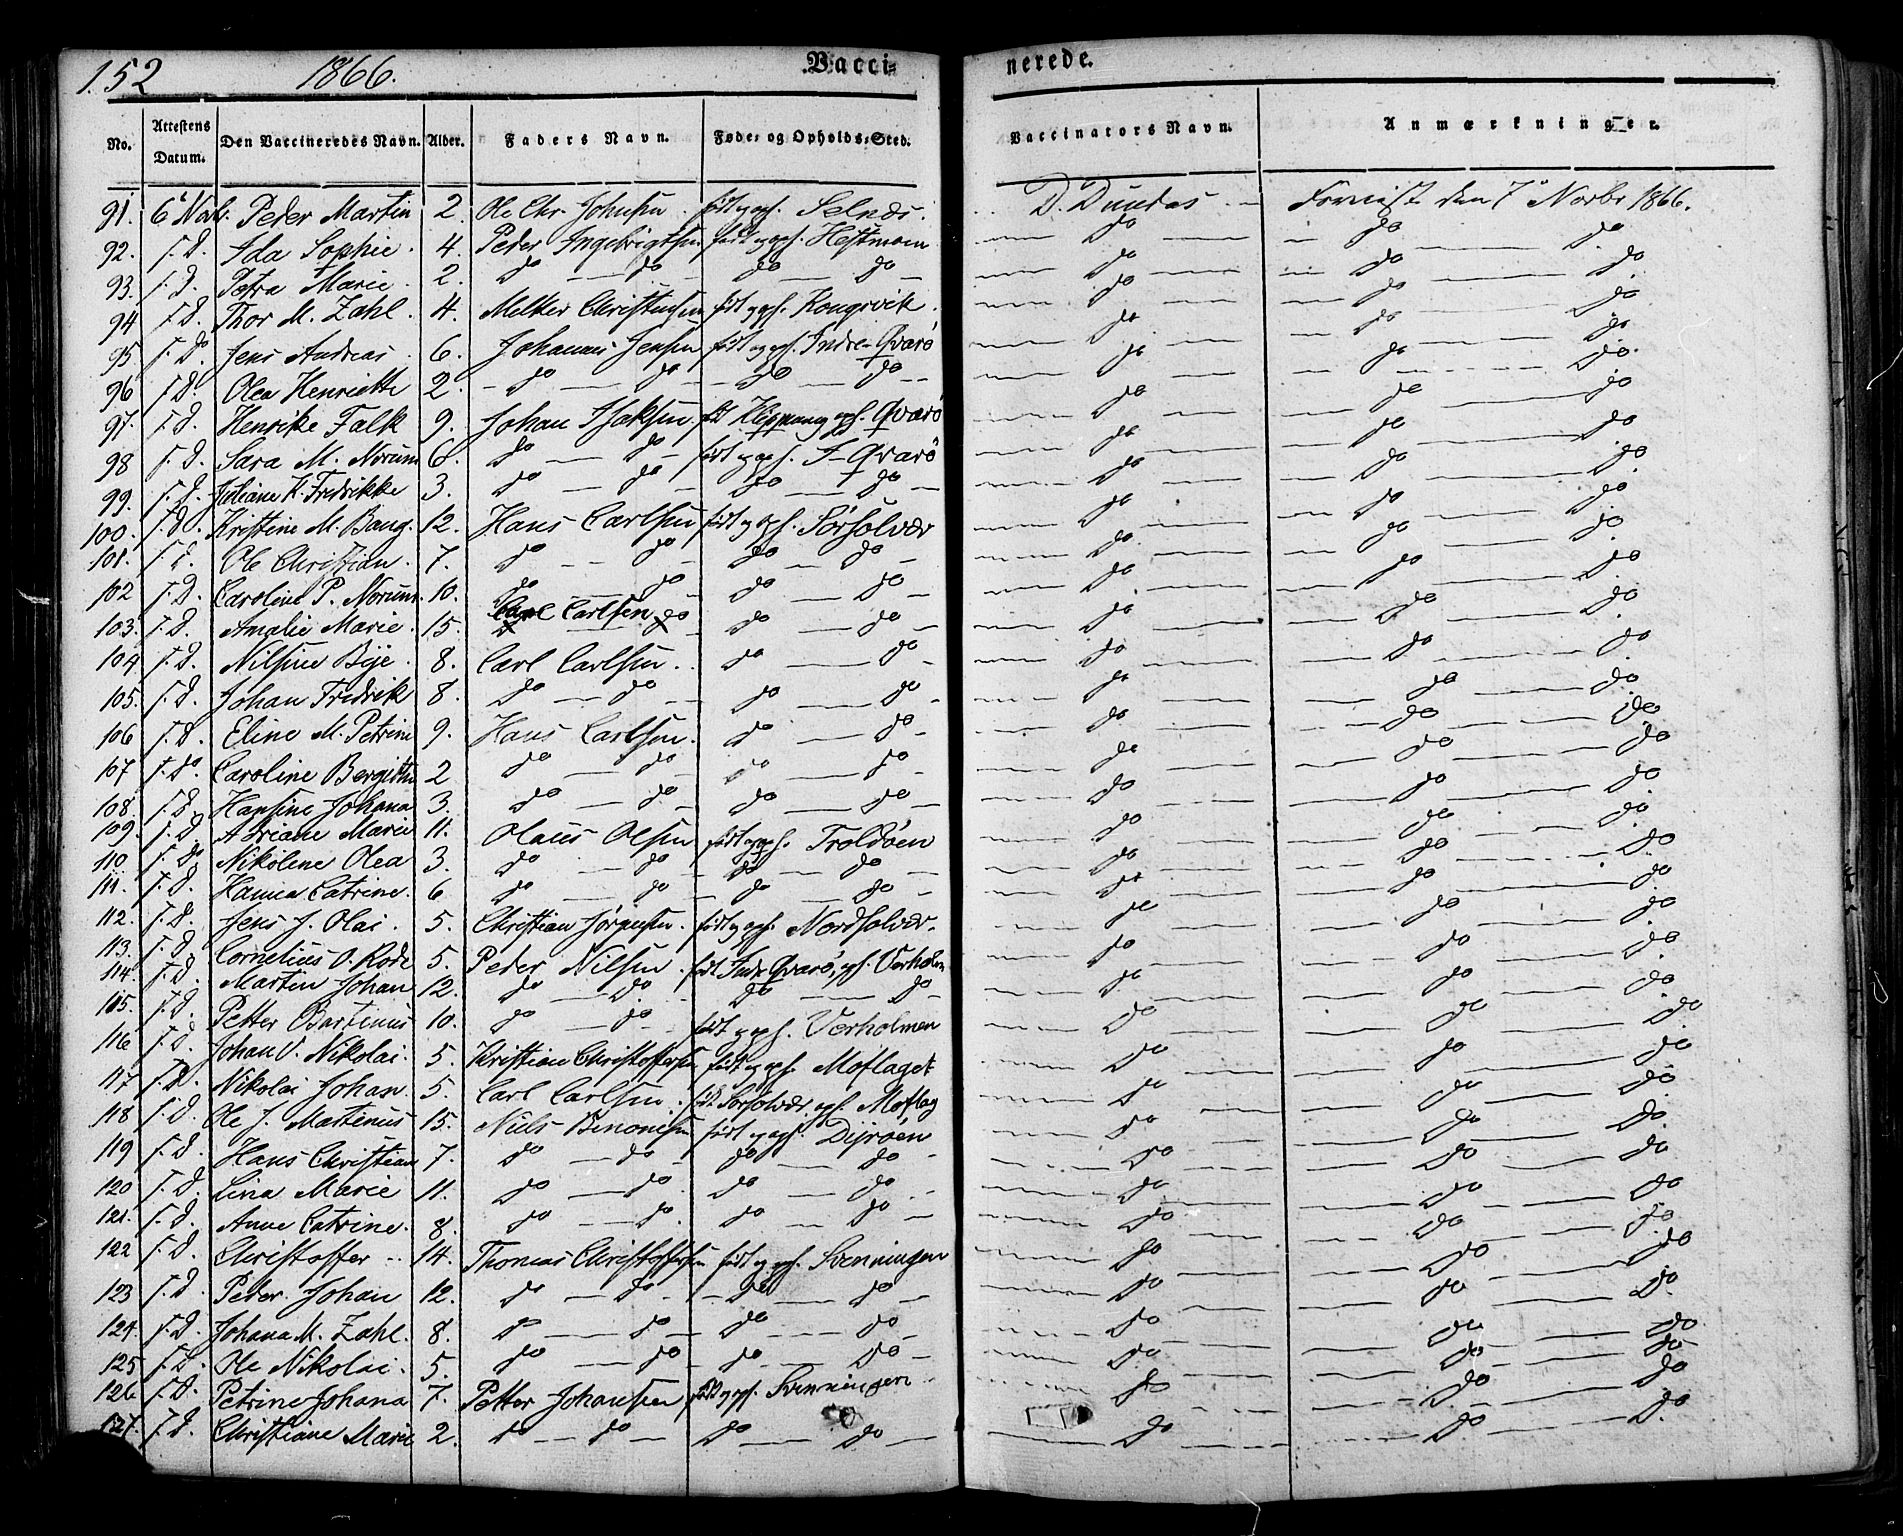 152 1866. Vacci= nerede.
No. Attestens Datum. Den Vaccineredes Navn. Alder. Faders Navn. Føde= og Opholds=Sted. Vaccinators Navn. Anmærkninger.
91. 6te Novbr. Peder Martin 2. Ole Chr. Johnsen. født og oph. Selnæs. D. Dundas Forevist den 7de Novbr 1866.
92. s. D. Ida Sophie. 4. Peder Ingebrigtsen født og oph. Hestmoen do do do
93. s. D. Petra Marie. 2. do do do do do do do
94 s. D. Thor M. Zahl. 4. Melker Christensen født og oph. Kongsvik. do do do
95 s. D. Jens Andreas. 6. Johannes Jensen født og oph. Indre-Qvarø do do do
96 s. D. Olea Henriette 2. do do do do do do do
97. s. D. Henrike Falk 9. Johan Isaksen. født oph. Qvarø do do do
98 s. D. Sara M. Norum 6. do do født og oph. I-Qvarø do do do
99. s. D. Juliane K. Fredrikke 3. do do do do do do do
100. s. D. Kristine M. Bang. 12. Hans Carlsen født og oph. Sørsolvær do do do
101. s. D. Ole Christian. 7. do do do do do do do
102 s. D. Caroline P. Norum. 10. do do do do do do do
103. s. D. Amalie Marie. 15. Carl Carlsen do do do do do do
104 s. D. Nilsine Bye. 8. Carl Carlsen. do do do do do
105. s. D. Johan Fredrik 8. do do do do do do do
106 s. D. Eline M. Petrine 9. Hans Carlsen. do do do do do
107 s. D. Caroline Bergitte 2 do do do do do do do
108. s. D. Hansine Johana 3. do do do do do do do
109. s. D. Adriane Marie 11. Olaus Olsen født og oph. Troldøen do do do
110 s. D. Nikoline Olea 3. do do do do do do do
111. s. D. Hanna Catrine. 6 do do do do do do do
112. s. D. Jens J. Olai. 5. Christian Jørgensen. født og oph. Nordsolvær. do do do
113. s. D. Cornelius O. Rode 5. Peder Nilsen. født Indre Qvarø, oph. Værholmen do do do
114. s. D. Martin Johan 12. do do do do do do do
115. s. D. Petter Bartenius 10. do do født og oph. Værholmen do do do
116 s. D. Johan V. Nikolai. 5. Kristian Christoffersen født og oph. Moflaget do do do
117 s. D. Nikolai Johan. 5. Carl Carlsen. født Sørsolvær, oph. Moflag do do do
118 s. D. Ole J. Martenius 15. Niels Benonisen født og oph. Dyrøen do do do
119 s. D. Hans Christian 7. do do do do do do do
120 s. D. Lina Marie 11. do do do do do do do
121. s. D. Anne Catrine. 8. do do do do do do do
122 s. D. Christoffer 14. Thomas Christoffersen født og oph. Svenningen do do do
123 s. D. Peder Johan 12. do do do do do do do
124. s. D. Johana M. Zahl. 8. do do do do do do do
125 s. D. Ole Nikolai. 5. do do do do do do do
126 s. D. Petrine Johana 7. Petter Johansen født og oph. Svenningen do do do
127. s. D. Christiane Marie 2. do do do do do do do